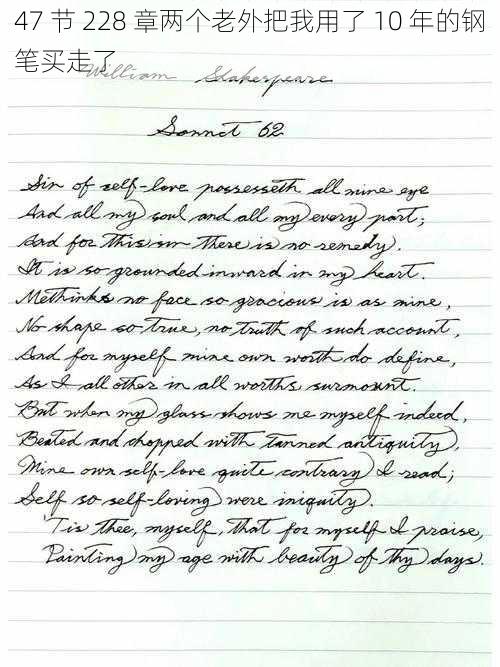 47 节 228 章两个老外把我用了 10 年的钢
笔买走了
William Shakespeare
Sonnet 62
Sin of self-love possesseth all mine eye
And all my soul and all my every part;
And for this sin there is no remedy.
It is so grounded inward in my heart.
Methinks no face so gracious is as mine,
No shape so true, no truth of such account,
And for myself mine own worth do define,
As I all other in all worths surmount.
But when my glass shows me myself indeed,
Beated and chopped with tanned antiquity,
Mine own self-love quite contrary I read;
Self so self-loving were iniquity.
'Tis thee, myself, that for myself I praise,
Painting my age with beauty of thy days.